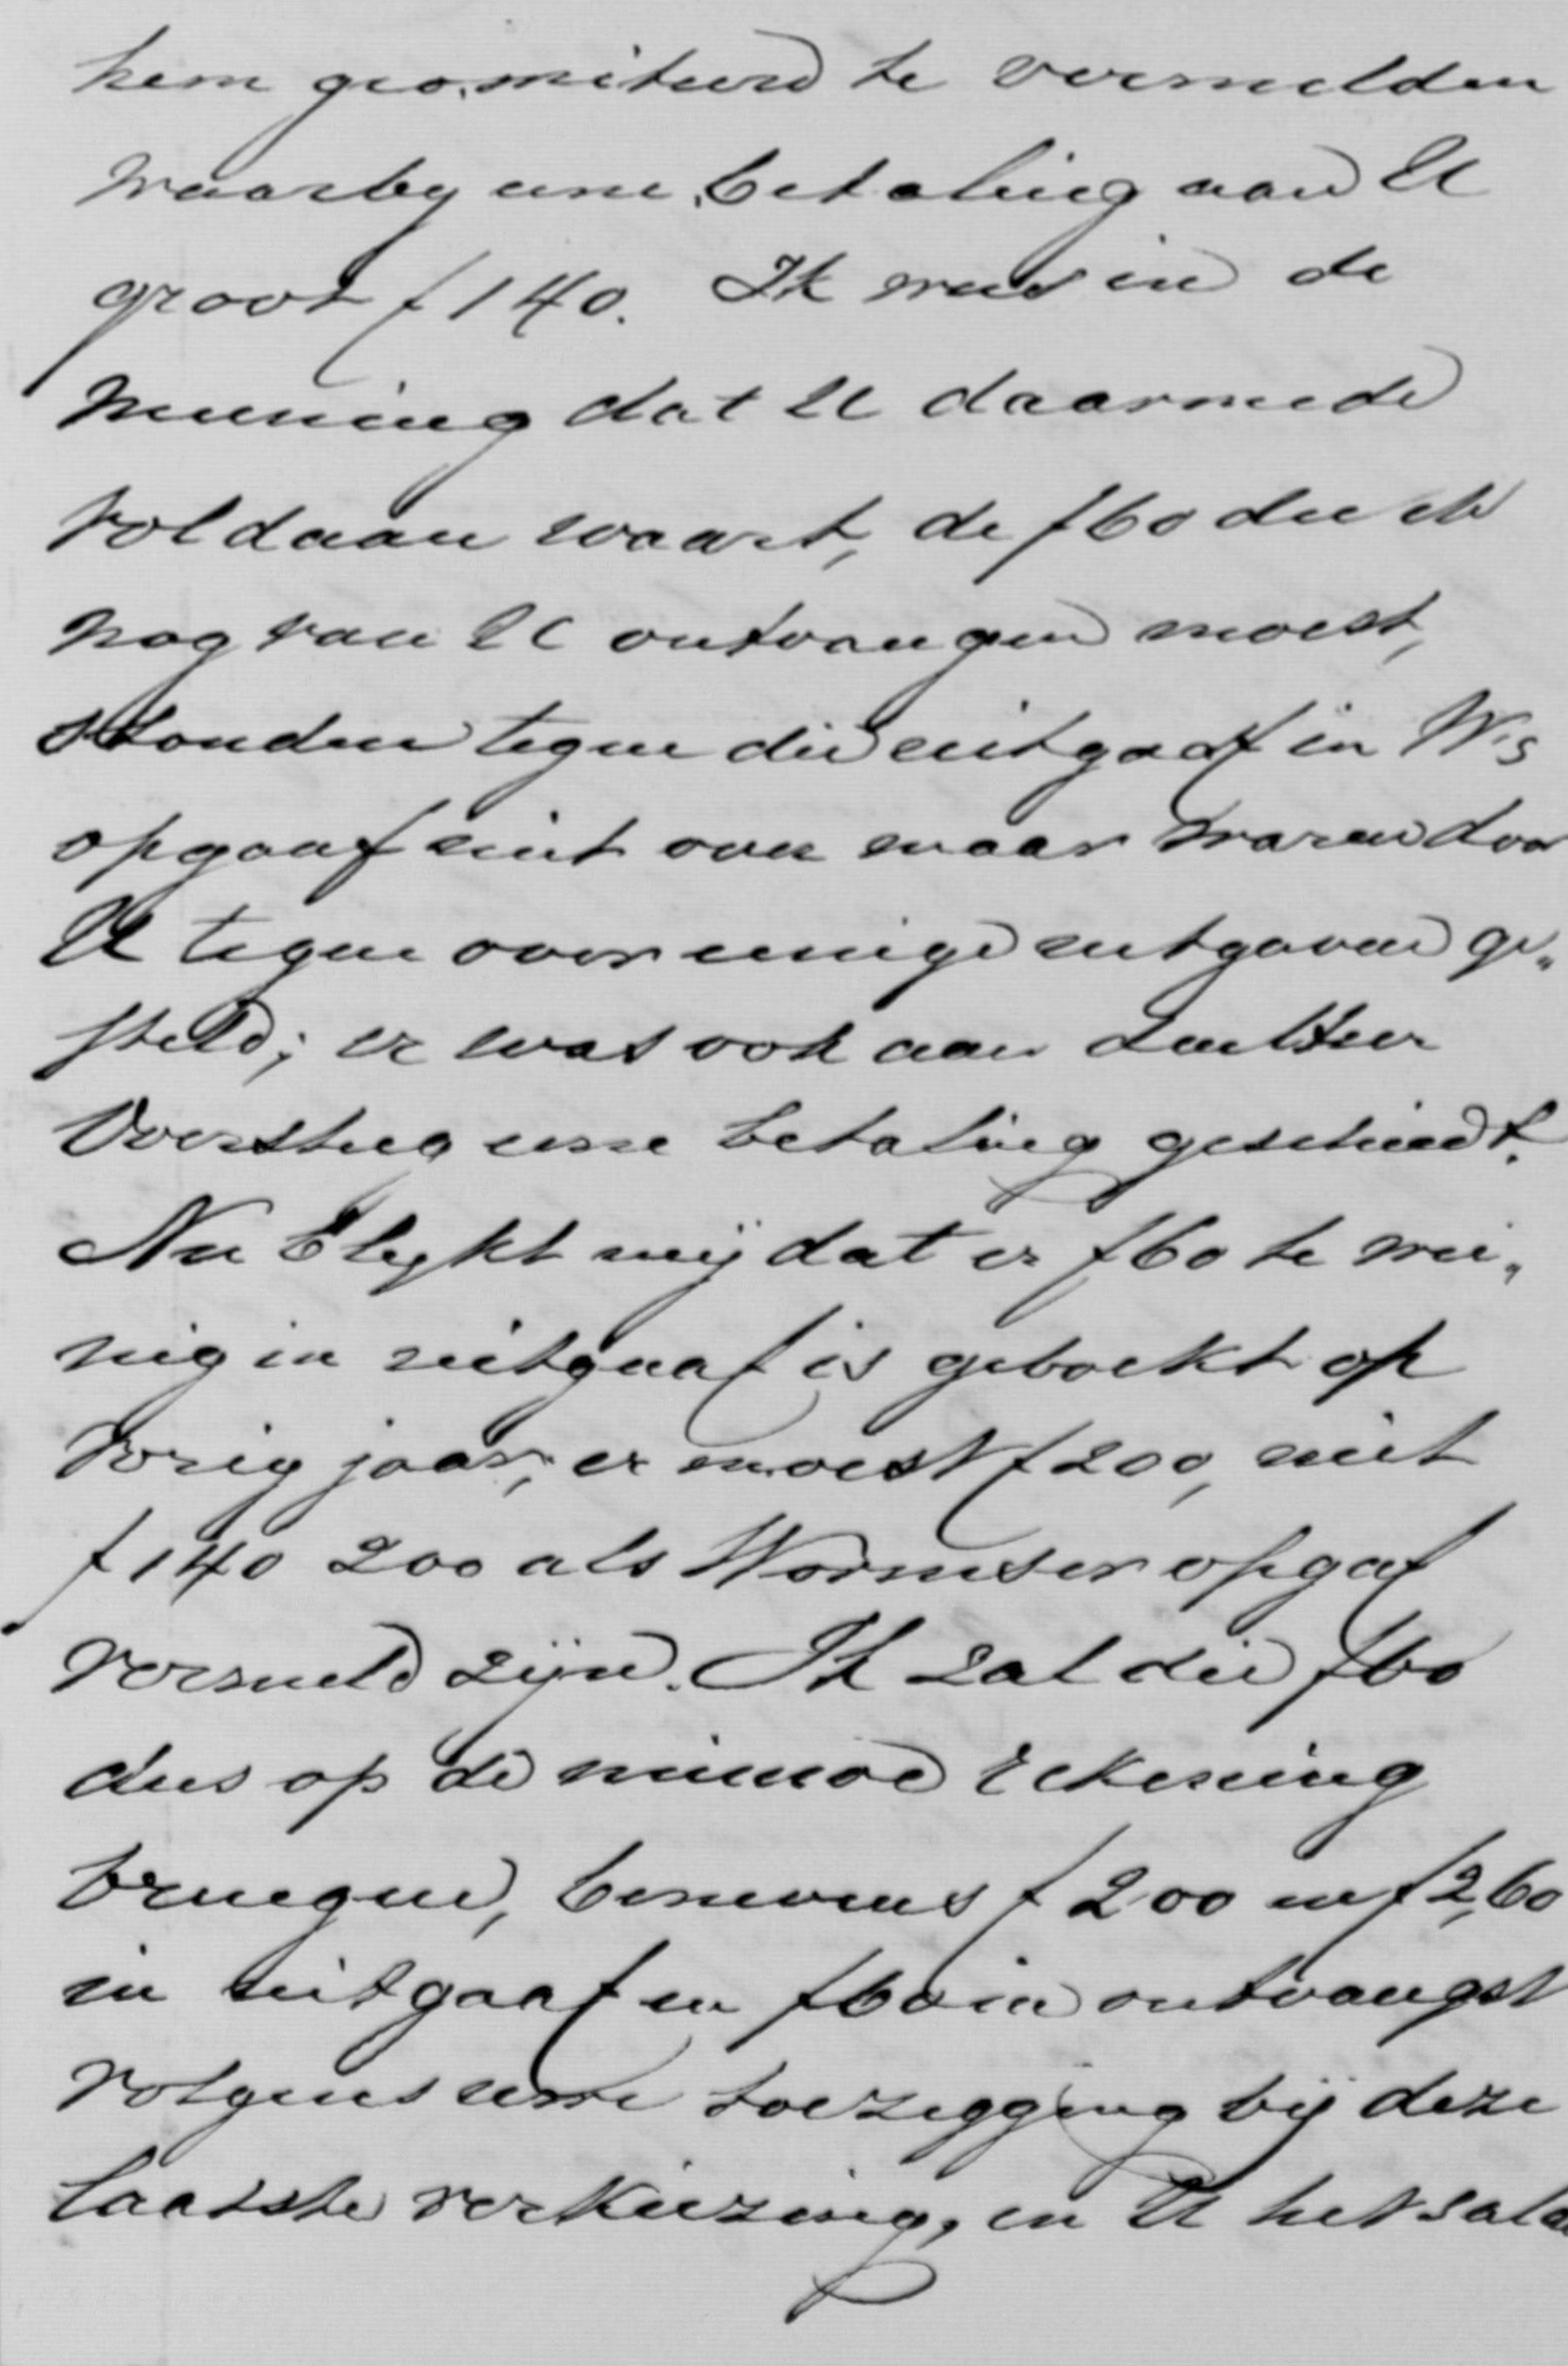 hem geomitteerd te vermelden
waarby eene betaling aan U
groot f 140. Ik was in de
meening dat U daarmede
voldaan waart, de f60 die ik
nog van U ontvangen moest,
stonden tegen die uitgaaf in W's
opgaaf niet over maar waren door
U tegen over eenige uitgaven ge„
steld; er was ook aan den Heer
Voersteeg eene betaling geschiedt.
Nu blykt mij dat er f60 te wei„
nig in uitgaaf is geboekt op
vorig jaar, er moest f200, niet
f140 zoo als Wormser opgaf
vermeld zijn. Ik zal die f60
dus op de nieuwe rekening
brengen, benevens f 200 en f2,60
in uitgaaf en f60 in ontvangst
volgens uwe toezegging bij deze
laatste verkiezing, en U het saldo